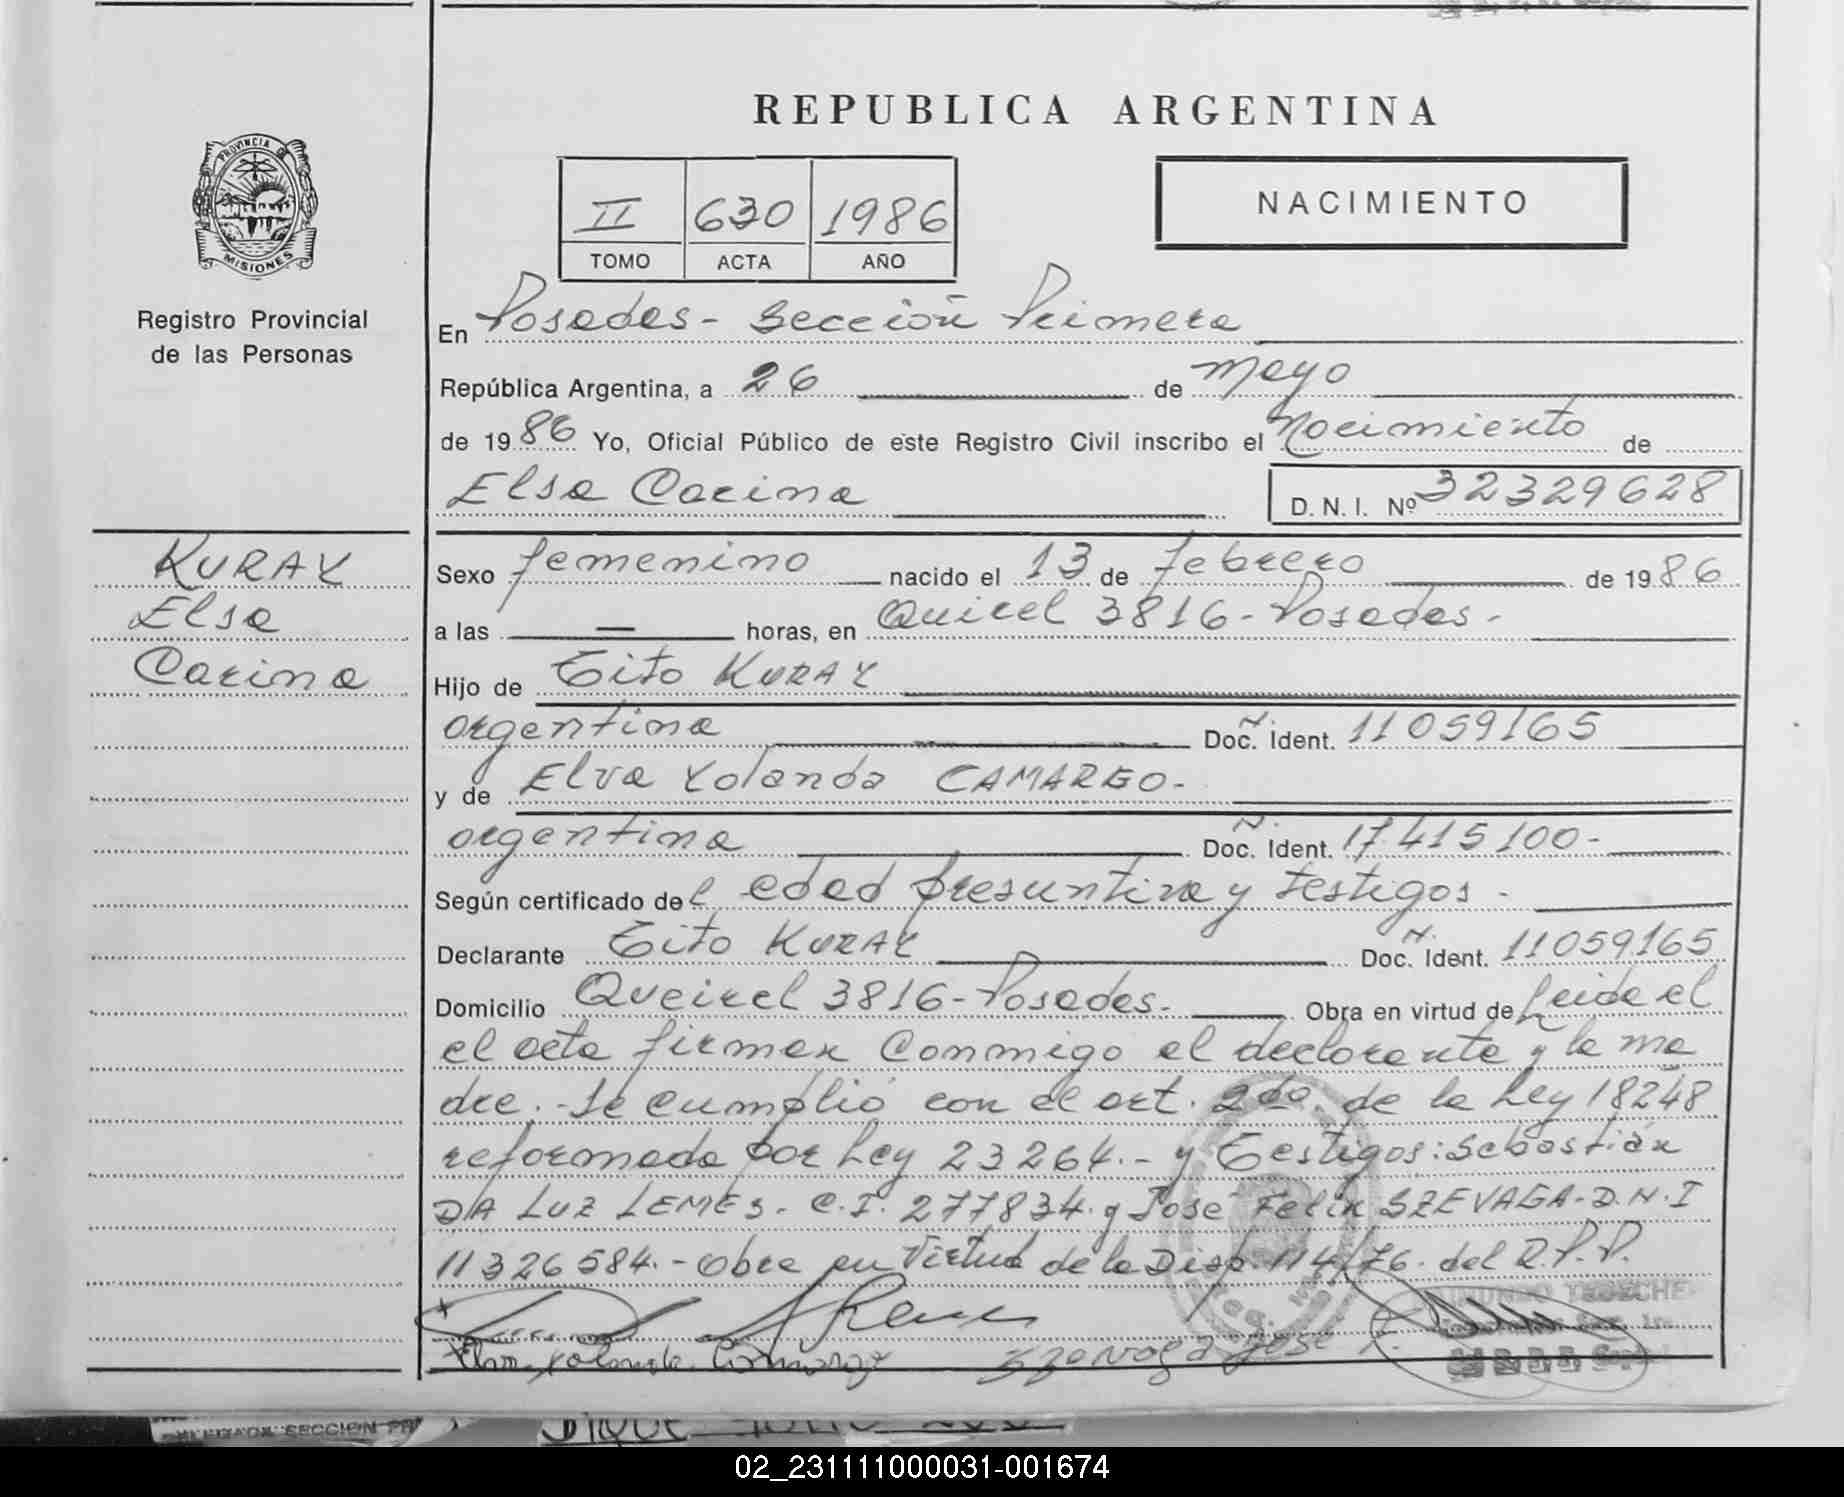 REPUBLICA ARGENTINA
PROVINCIA DE
MISIONES
Registro Provincial
de las Personas
II 630 1986
TOMO ACTA AÑO
NACIMIENTO
En Posadas - Sección Primera
República Argentina, a 26 de Mayo
de 1986 Yo, Oficial Público de este Registro Civil inscribo el Nacimiento de
Elsa Carina D.N.I. Nº 32329628
KURAY
Elsa
Carina
Sexo femenino nacido el 13 de febrero de 1986
a las — horas, en Queirel 3816 - Posadas -
Hijo de Tito KURAY
argentina Doc. Ident. 11059165
y de Elva Yolanda CAMARGO -
argentina Doc. Ident. 17.415100 -
Según certificado del edad presuntiva y testigos -
Declarante Tito KURAY Doc. Ident. 11059165
Domicilio Queirel 3816 - Posadas - Obra en virtud de Leida el
el acta firman conmigo el declarante y la ma
dre. - Se cumplió con el art. 2do de la Ley 18248
reformada por Ley 23264. - y Testigos: Sebastián
DA LUZ LEMES - C.I. 277834 y José Felix SZEVAGA - D.N.I
11326584. - Obra en Virtud de la Disp. 114/76. del R.P.P.
Elva Yolanda Camargo
SECCION
02_231111000031-001674